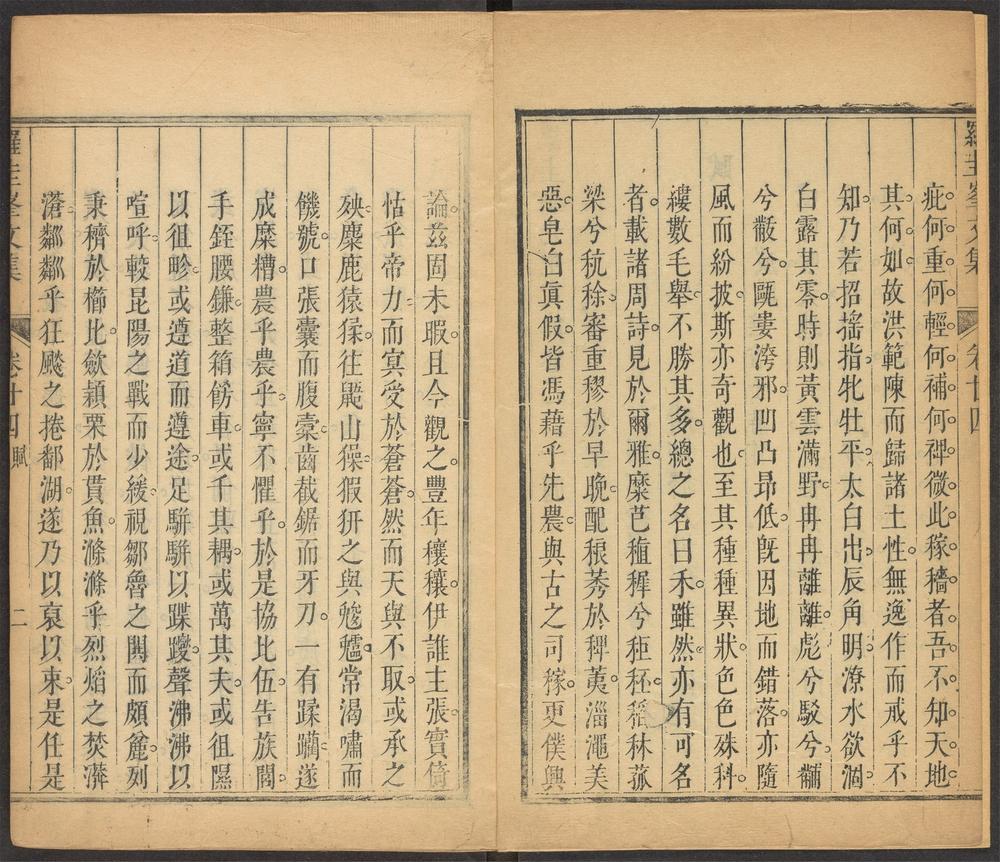 疵何重何輕何補何裨微此稼穡者吾不知天地
其何如故洪範陳而歸諸土性無逸作而戒乎不
知乃若招搖指牝牡平太白出辰角明潦水欲涸
白露其零時則黃雲滿野冉冉離離彪兮駁兮黼
兮黻兮甌婁洿邪凹凸昂低旣因地而錯落亦隨
風而紛披斯亦奇觀也至其種種異狀色色殊科
縷數毛舉不勝其多總之名曰禾雖然亦有可名
者載諸周詩見於爾雅穈芑稙穉兮秬秠稻秫菰
梁兮秔稌審重穋於早晚配稂莠於稗荑淄澠美
惡皂白眞假皆馮藉乎先農與古之司稼更僕興
羅圭峯文集
卷廿四
論茲固未暇且今觀之豊年穰穰伊誰主張實倚
怙乎帝力而寞受於蒼蒼然而天與不取或承之
殃麋鹿猿猱往鼯山㺑猳豣之與鼸鼯常渴嘯而
饑號口張囊而腹槖齒截鋸而牙刀一有蹂躪遂
成糜糟農乎農乎寧不懼乎於是協比伍告族閭
手銍腰鎌整箱飭車或千其耦或萬其夫或徂隰
以徂畛或遵道而遵途足騈騈以蹀躞聲沸沸以
喧呼較昆陽之戰而少緩視鄒魯之鬨而頗麄列
秉穧於櫛比斂穎栗於貫魚滌滌乎烈焰之焚㵎
滻鄰鄰乎狂颷之捲鄱湖遂乃以裒以束是任是
羅圭峯文集
卷廿四
賦
二